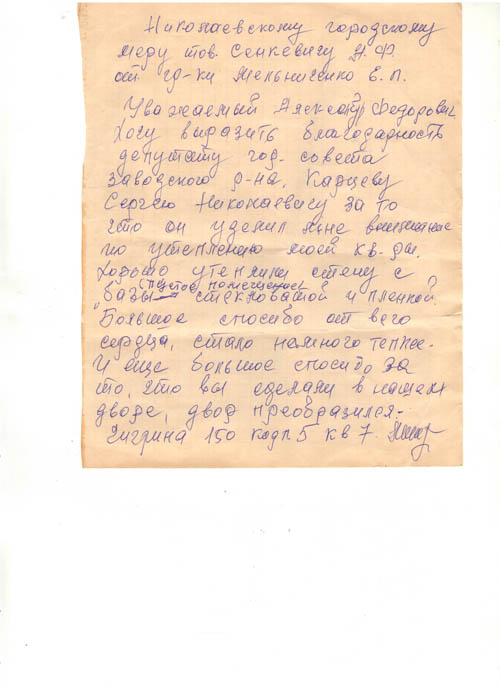 Николаевскому городскому
меру тов. Сенкевичу А. Ф.
от гр-ки Мельниченко Е. П.
Уважаемый Александр Федорович
Хочу выразить благодарность
депутату гор. совета
Заводского р-на, Карцеву
Сергею Николаевичу за то
что он уделил мне внимание
по утеплению моей кв-ры.
Хорошо утеплили стену с
(пустое помещение)
"базы" стекловатой и пленкой.
Большое спосибо от всего
сердца, стало намного теплее.
И еще большое спосибо за
то, что вы сделали в нашем
дворе, двор преобразился.
Чигрина 150 корп. 5 кв 7.